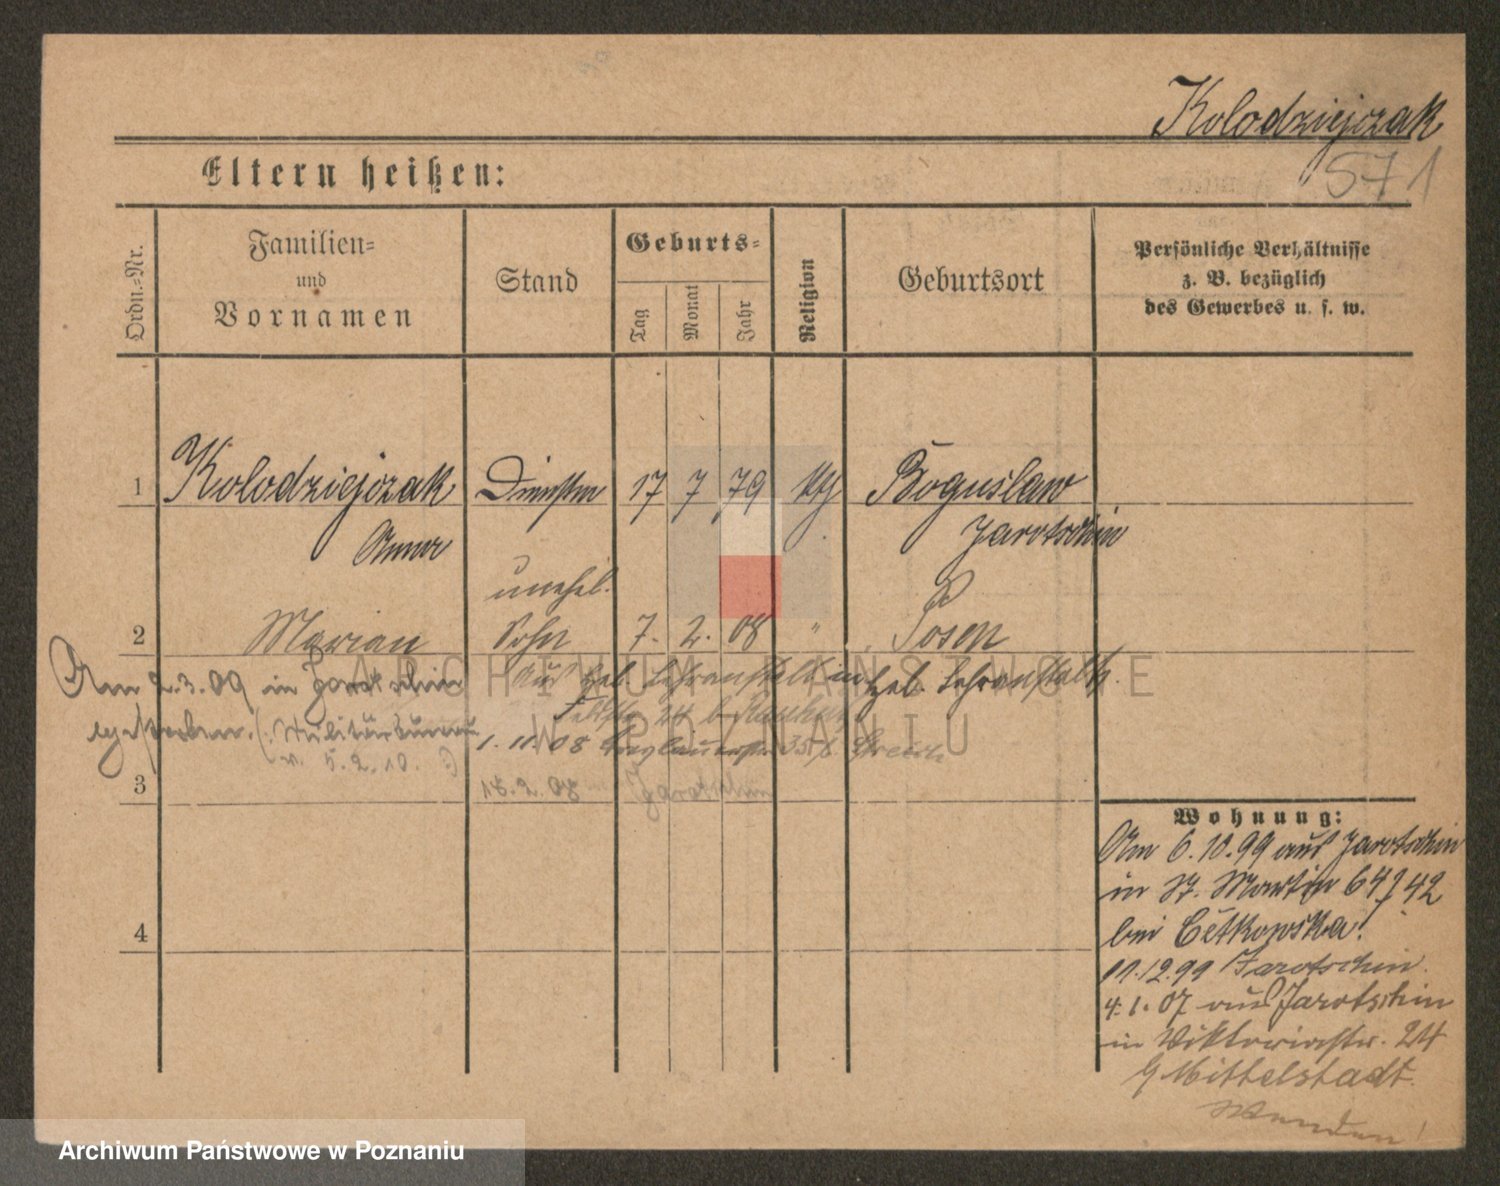 Kolodziejczak
571
Eltern heißen:
Ordn.-Nr.
Familien- und Vornamen
Stand
Geburts-
Tag
Monat
Jahr
Religion
Geburtsort
Persönliche Verhältnisse
z. B. bezüglich
des Gewerbes u. s. w.
1 Kolodziejczak 17 7 79 kth Boguslaw
Anna Jarotschin
unehel.
2 Marian Sohn 7. 2. 08 " Posen
Am 2.3.09 in Jarotschin
Aus Heb. Lehranstalt in Heb. Lehranstalt.
gestorben. (Militärbureau
v. 5.2.10.)
1. 11. 08
3
18.2.08 Jarotschin
4
Wohnung:
Am 6.10.99 aus Jarotschin
in St. Martin 64/42
bei Cetkowska!
11.12.99 Jarotschin.
4.1.07 aus Jarotschin
in Viktoriastr. 24
b Mittelstadt.
Wenden!
ARCHIWUM PAŃSTWOWE
W POZNANIU
Archiwum Państwowe w Poznaniu